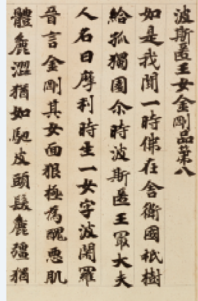 波斯匿王女金剛品第八
如是我聞一時佛在舍衛國祇樹
給孤獨園尒時波斯匿王冣大夫
人名曰摩利時生一女字波闍羅
晉言金剛其女面狠極為醜惡肌
體麁澀猶如駞皮頭髮麁彊猶